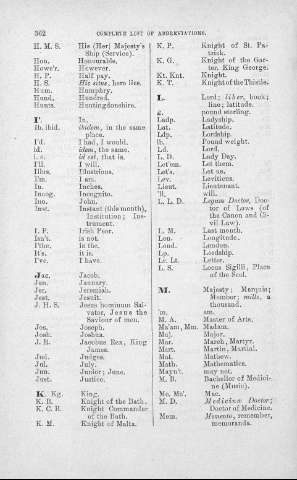 362 COMPLETE LIST OF ABBREVIATIONS.
H. M. S. His (Her) Majesty's
Ship (Service).
Hon. Honourable.
Howe'r. However.
H. P. Half pay.
H. S. Hic situs, here lies.
Hum. Humphry.
Hund. Hundred.
Hunts. Huntingdonshire.
I'. In.
Ib. ibid. ibidem, in the same
place.
I'd. I had, I would.
Id. idem, the same.
i. e. id est, that is.
I'll. I will.
Illus. Illustrious.
I'm. I am.
In. Inches.
Incog. Incognito.
Ino. John.
Inst. Instant (this month),
Institution; Ins-
trument.
I. P. Irish Peer.
Isn't. is not.
I'the. In the.
It's. it is.
I've. I have.
Jac. Jacob.
Jan. January.
Jer. Jeremiah.
Jest. Jesuit.
J. H. S. Jesus hominum Sal-
vator, Jesus the
Saviour of men.
Jos. Joseph.
Josh. Joshua.
J. R. Jacobus Rex, King
James.
Jud. Judges.
Jul. July.
Jun. Junior; June.
Just. Justice.
K. Kg. King.
K. B. Knight of the Bath.
K. C. B. Knight Commander
of the Bath.
K. M. Knight of Malta.
K. P. Knight of St. Pa-
trick.
K. G. Knight of the Gar-
ter, King George.
Kt. Knt. Knight.
K. T. Knight of the Thistle.
L. Lord; liber, book;
line; latitude.
£. pound sterling.
Ladp. Ladyship.
Lat. Latitude.
Ldp. Lordship.
lb. Pound weight.
Ld. Lord.
L. D. Lady Day.
Let'em. Let them.
Let's. Let us.
Lev. Leviticus.
Lieut. Lieutenant.
'll. will.
L. L. D. Legum Doctor, Doc-
tor of Laws (of
the Canon and Ci-
vil Law).
L. M. Last month.
Lon. Longitude.
Lond. London.
Lp. Lordship.
Lr. Lt. Letter.
L. S. Locus Sigilli, Place
of the Seal.
M. Majesty; Marquis;
Member; mille, a
thousand.
'm. am.
M. A. Master of Arts.
Ma'am, Mm. Madam.
Maj. Major.
Mar. March, Martyr.
Mart. Martin, Martial.
Mat. Mathew.
Math. Mathematics.
Mayn't. may not.
M. B. Bachellor of Medici-
ne (Music).
Mc. Ms'. Mac.
M. D. Medicinæ Doctor;
Doctor of Medicine.
Mem. Memento, remember,
memoranda.